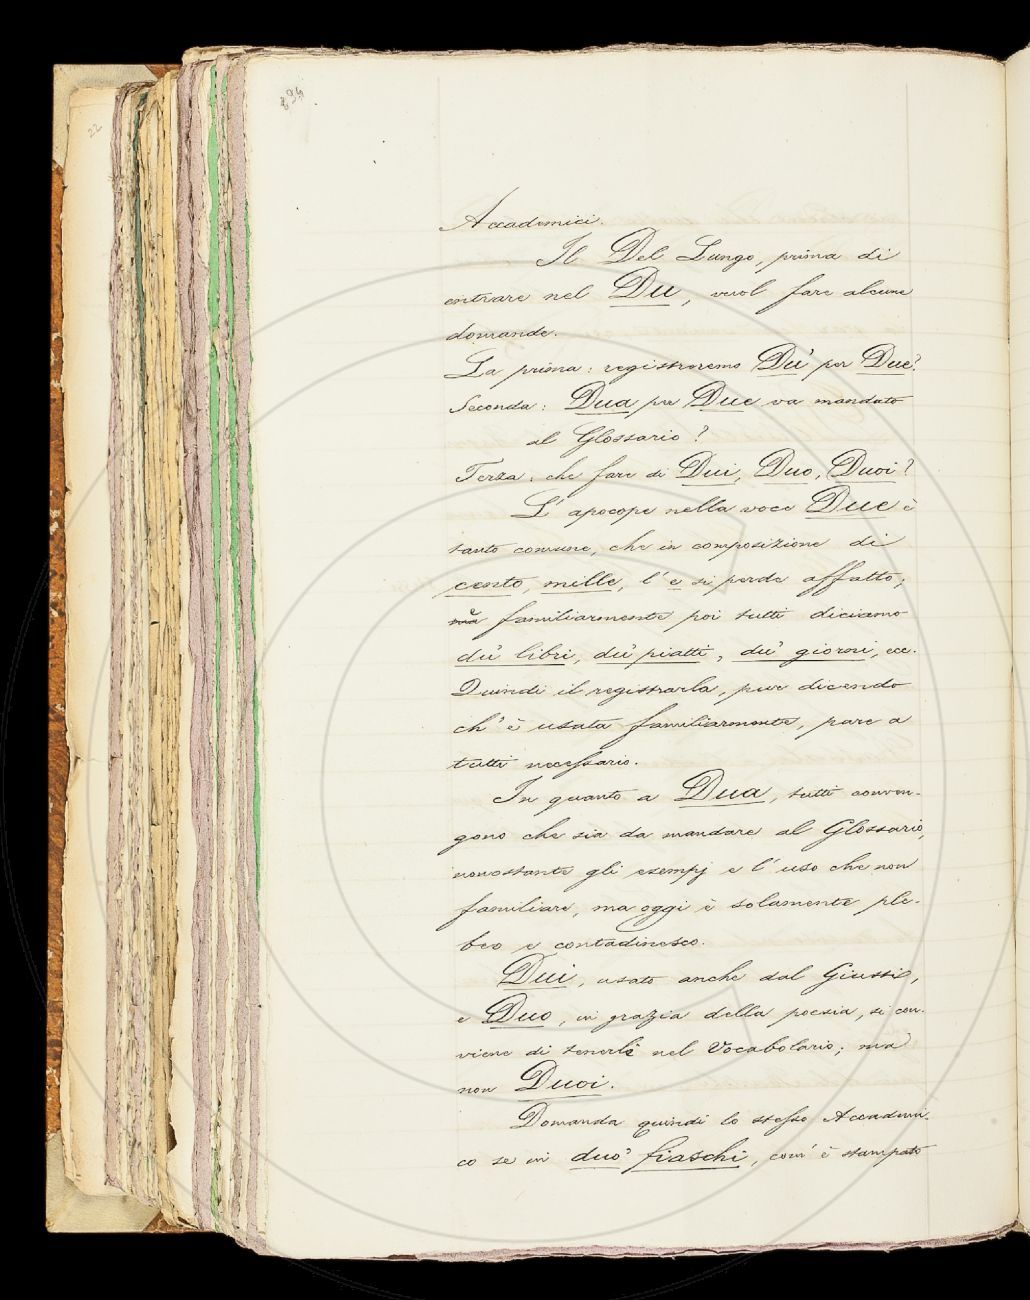 894
22
Accademici.
Il Del Lungo, prima di
entrare nel Du, vuol fare alcune
domande.
La prima: registreremo Du' per Due?
Seconda: Dua per Due va mandato
al Glossario?
Terza: che fare di Dui, Duo, Duoi?
L'apocope nella voce Due è
tanto comune, che in composizione di
cento, mille, l'e si perde affatto;
familiarmente poi tutti diciamo
du' libri, du' piatti, du' giorni, ecc.
Quindi il registrarla, pur dicendo
ch'è usata familiarmente, pare a
tutti necessario.
In quanto a Dua, tutti conven-
gono che sia da mandare al Glossario,
nonostante gli esempj e l'uso che non
familiare, ma oggi è solamente ple-
beo e contadinesco.
Dui, usato anche dal Giusti,
e Duo, in grazia della poesia, si con-
viene di tenerli nel Vocabolario; ma
non Duoi.
Domanda quindi lo stesso Accademi-
co se in duo' fiaschi, com'è stampato